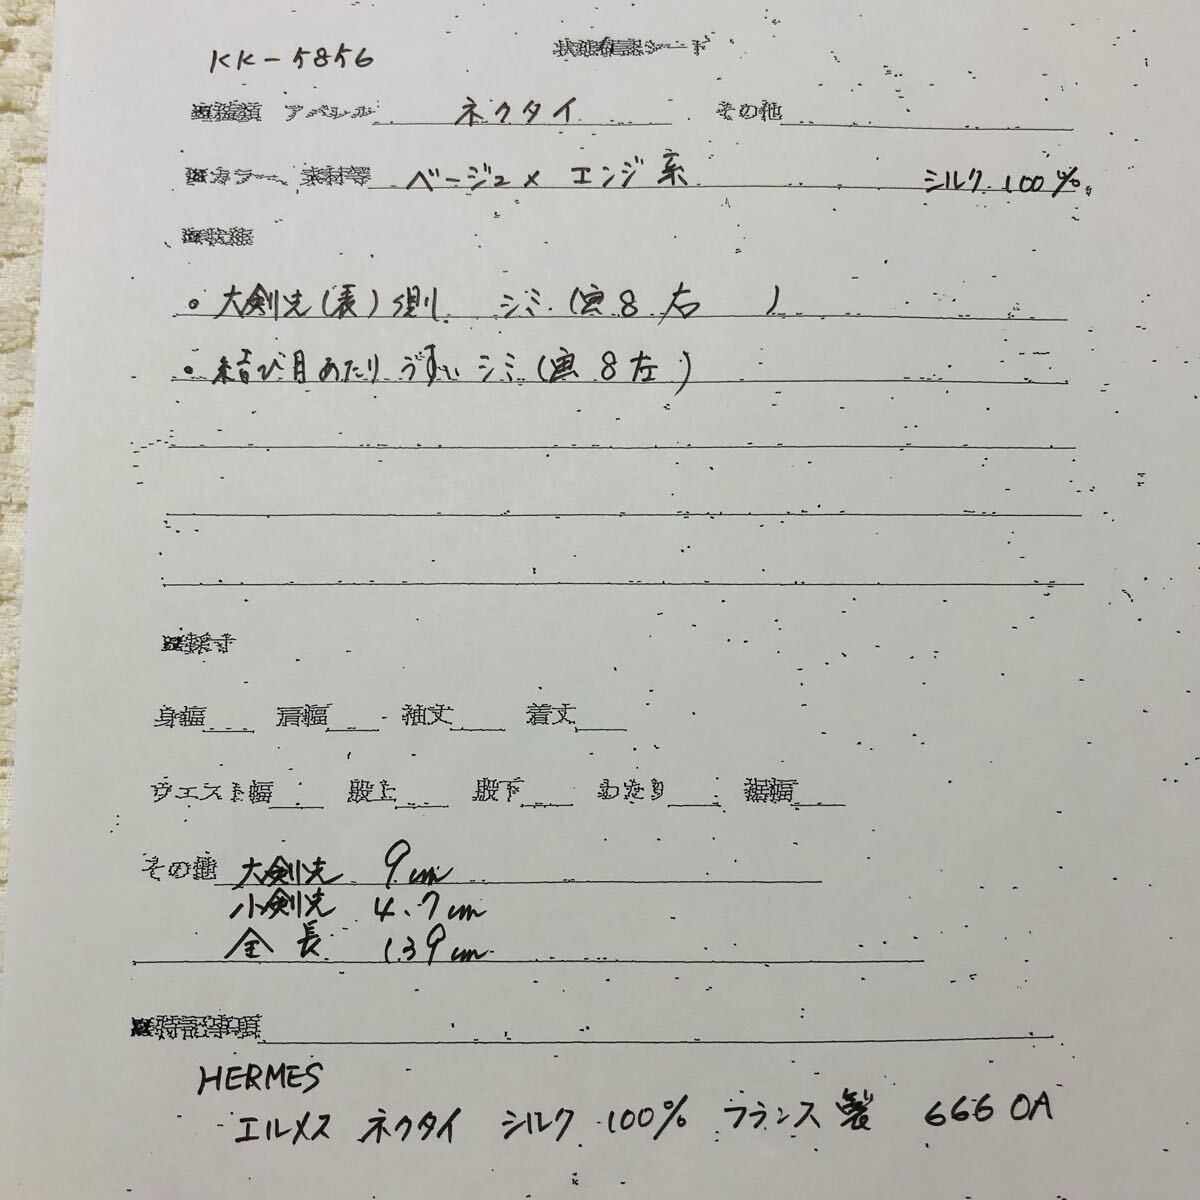 KK-5856
アパレル ネクタイ その他
カラー、素材等 ベージュ× エンジ系 シルク 100%
状態
・大剣先(表)側 シミ(画8右 )
・結び目あたり うすいシミ(画8左)
採寸
身幅 肩幅 袖丈 着丈
ウエスト幅 股上 股下 わたり 裾幅
その他 大剣先 9cm
小剣先 4.7cm
全長 139cm
特記事項
HERMES
エルメス ネクタイ シルク 100% フランス製 6660A